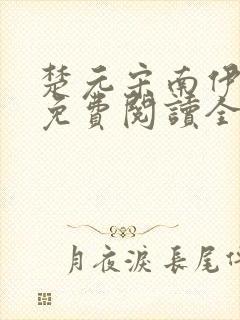 楚元宋南伊
免費閱讀全
月夜淚 長尾